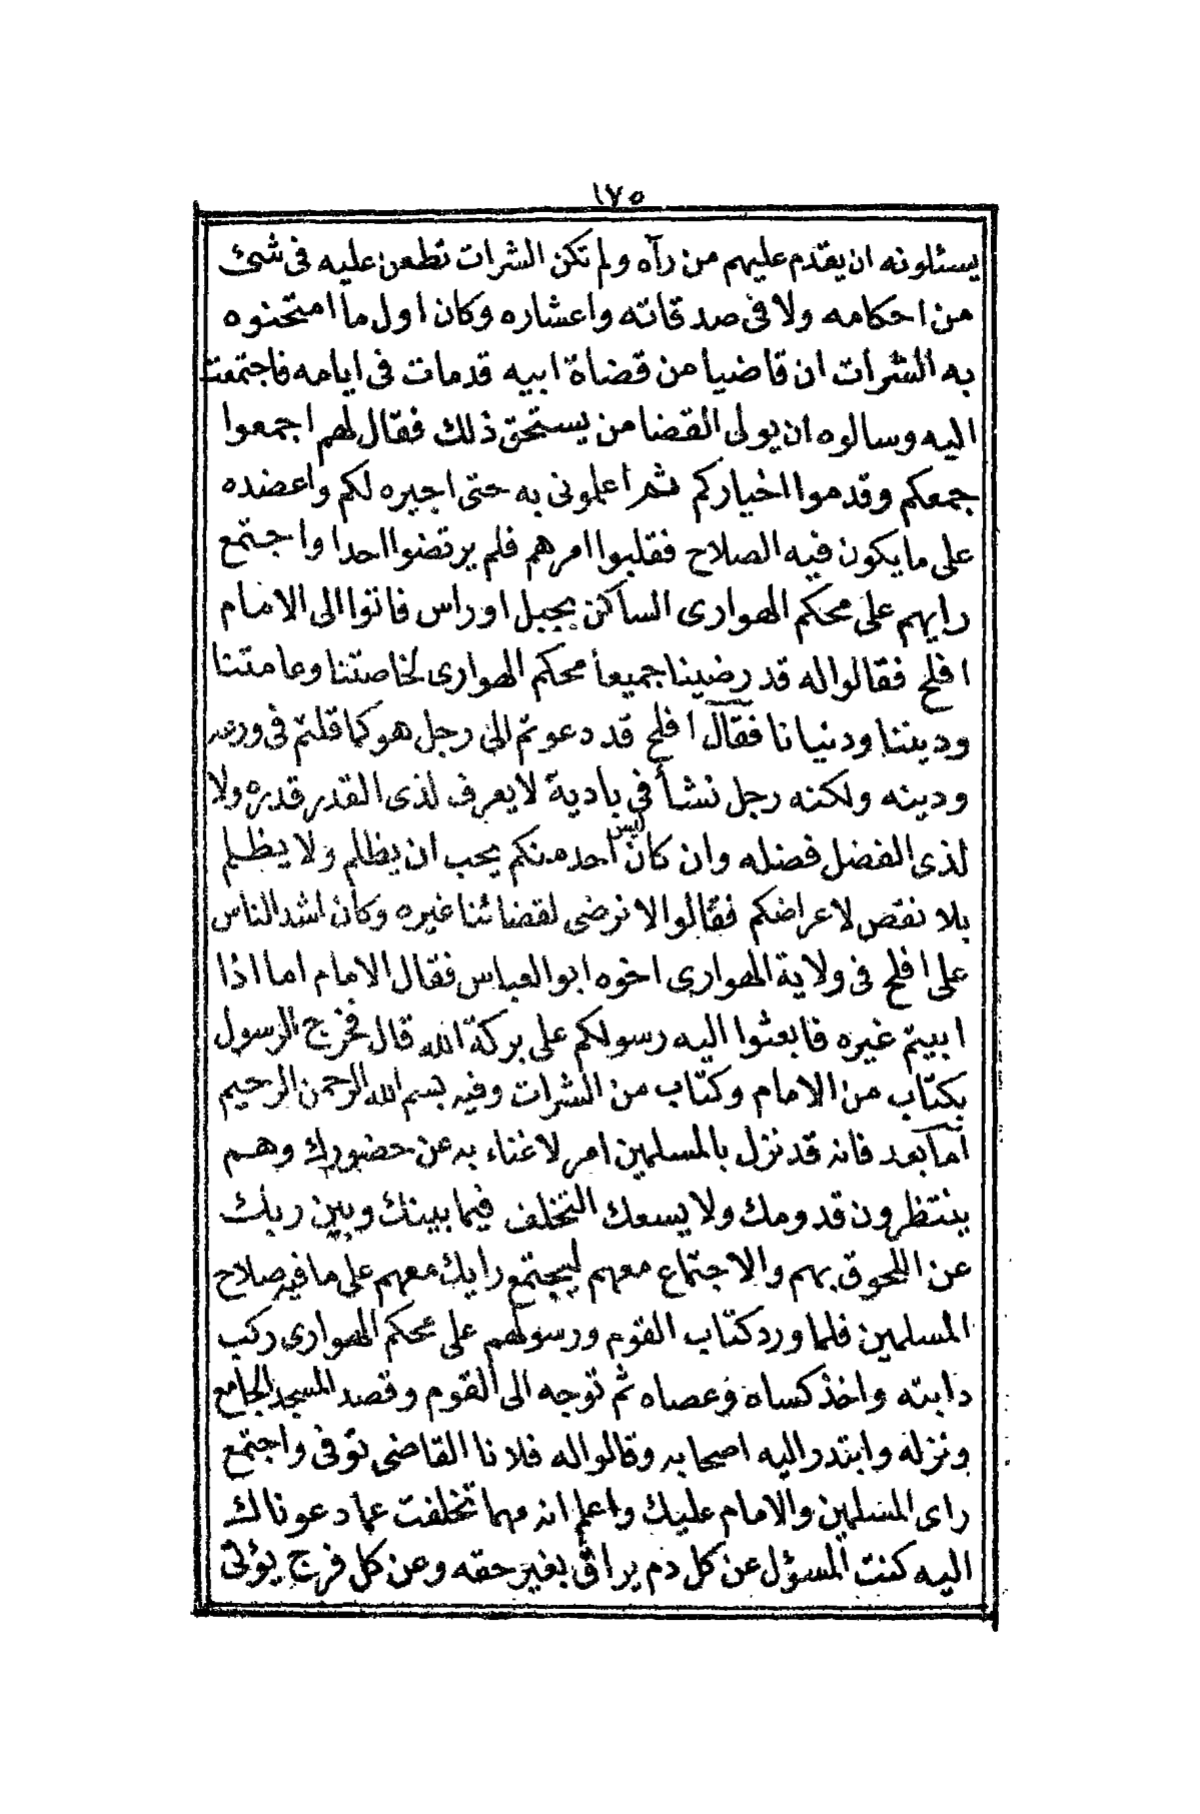 ١٧٥
يسئلونه ان يقدم عليهم من رآه ولم تكن الشرات تطعن عليه فى شئ
من احكامه ولا فى صدقاته واعشاره وكان اول ما امتحنوه
به الشرات ان قاضيا من قضاة ابيه قدمات فى ايامه فاجتمعت
اليه وسالوه ان يولى القضا من يستحق ذلك فقال لهم اجمعوا
جمعكم وقدموا اخياركم ثم اعلمونى به حتى اجيره لكم واعضده
على ما يكون فيه الصلاح فقلبوا امرهم فلم يرتضوا احدا واجتمع
رايهم على محكم الهوارى الساكن بجبل اوراس فاتوا الى الامام
افلح فقالوا له قد رضينا جميعا محكم الهوارى لخاصتنا وعامتنا
وديننا ودنيانا فقال افلح قد دعوتم الى رجل هو كما قلتم فى ورعه
ودينه ولكنه رجل نشأ فى بادية لا يعرف لذى القدر قدره ولا
لذى الفضل فضله وان كان ليس احد منكم يحب ان يظلم ولا يظلم
بلا نقص لاعراضكم فقالوا لا نرضى لقضائنا غيره وكان اشد الناس
على افلح فى ولاية الهوارى اخوه ابو العباس فقال الامام اما اذا
ابيتم غيره فابعثوا اليه رسولكم على بركة الله قال فخرج الرسول
بكتاب من الامام وكتاب من الشرات وفيه بسم الله الرحمن الرحيم
اما بعد فانه قد نزل بالمسلمين امر لا غناء به عن حضورك وهم
ينتظرون قدومك ولا يسعك التخلف فيما بينك وبين ربك
عن اللحوق بهم والاجتماع معهم ليجتمع رايك معهم على ما فيه صلاح
المسلمين فلما ورد كتاب القوم ورسولهم على محكم الهوارى ركب
دابته واخذ كساه وعصاه ثم توجه الى القوم وقصد المسجد الجامع
ونزله وابتدر اليه اصحابه وقالوا له فلانا القاضى توفى واجتمع
راى المسلمين والامام عليك واعلم انه مهما تخلفت عما دعوناك
اليه كنت المسؤل عن كل دم يراق بغير حقه وعن كل فرج يؤتى